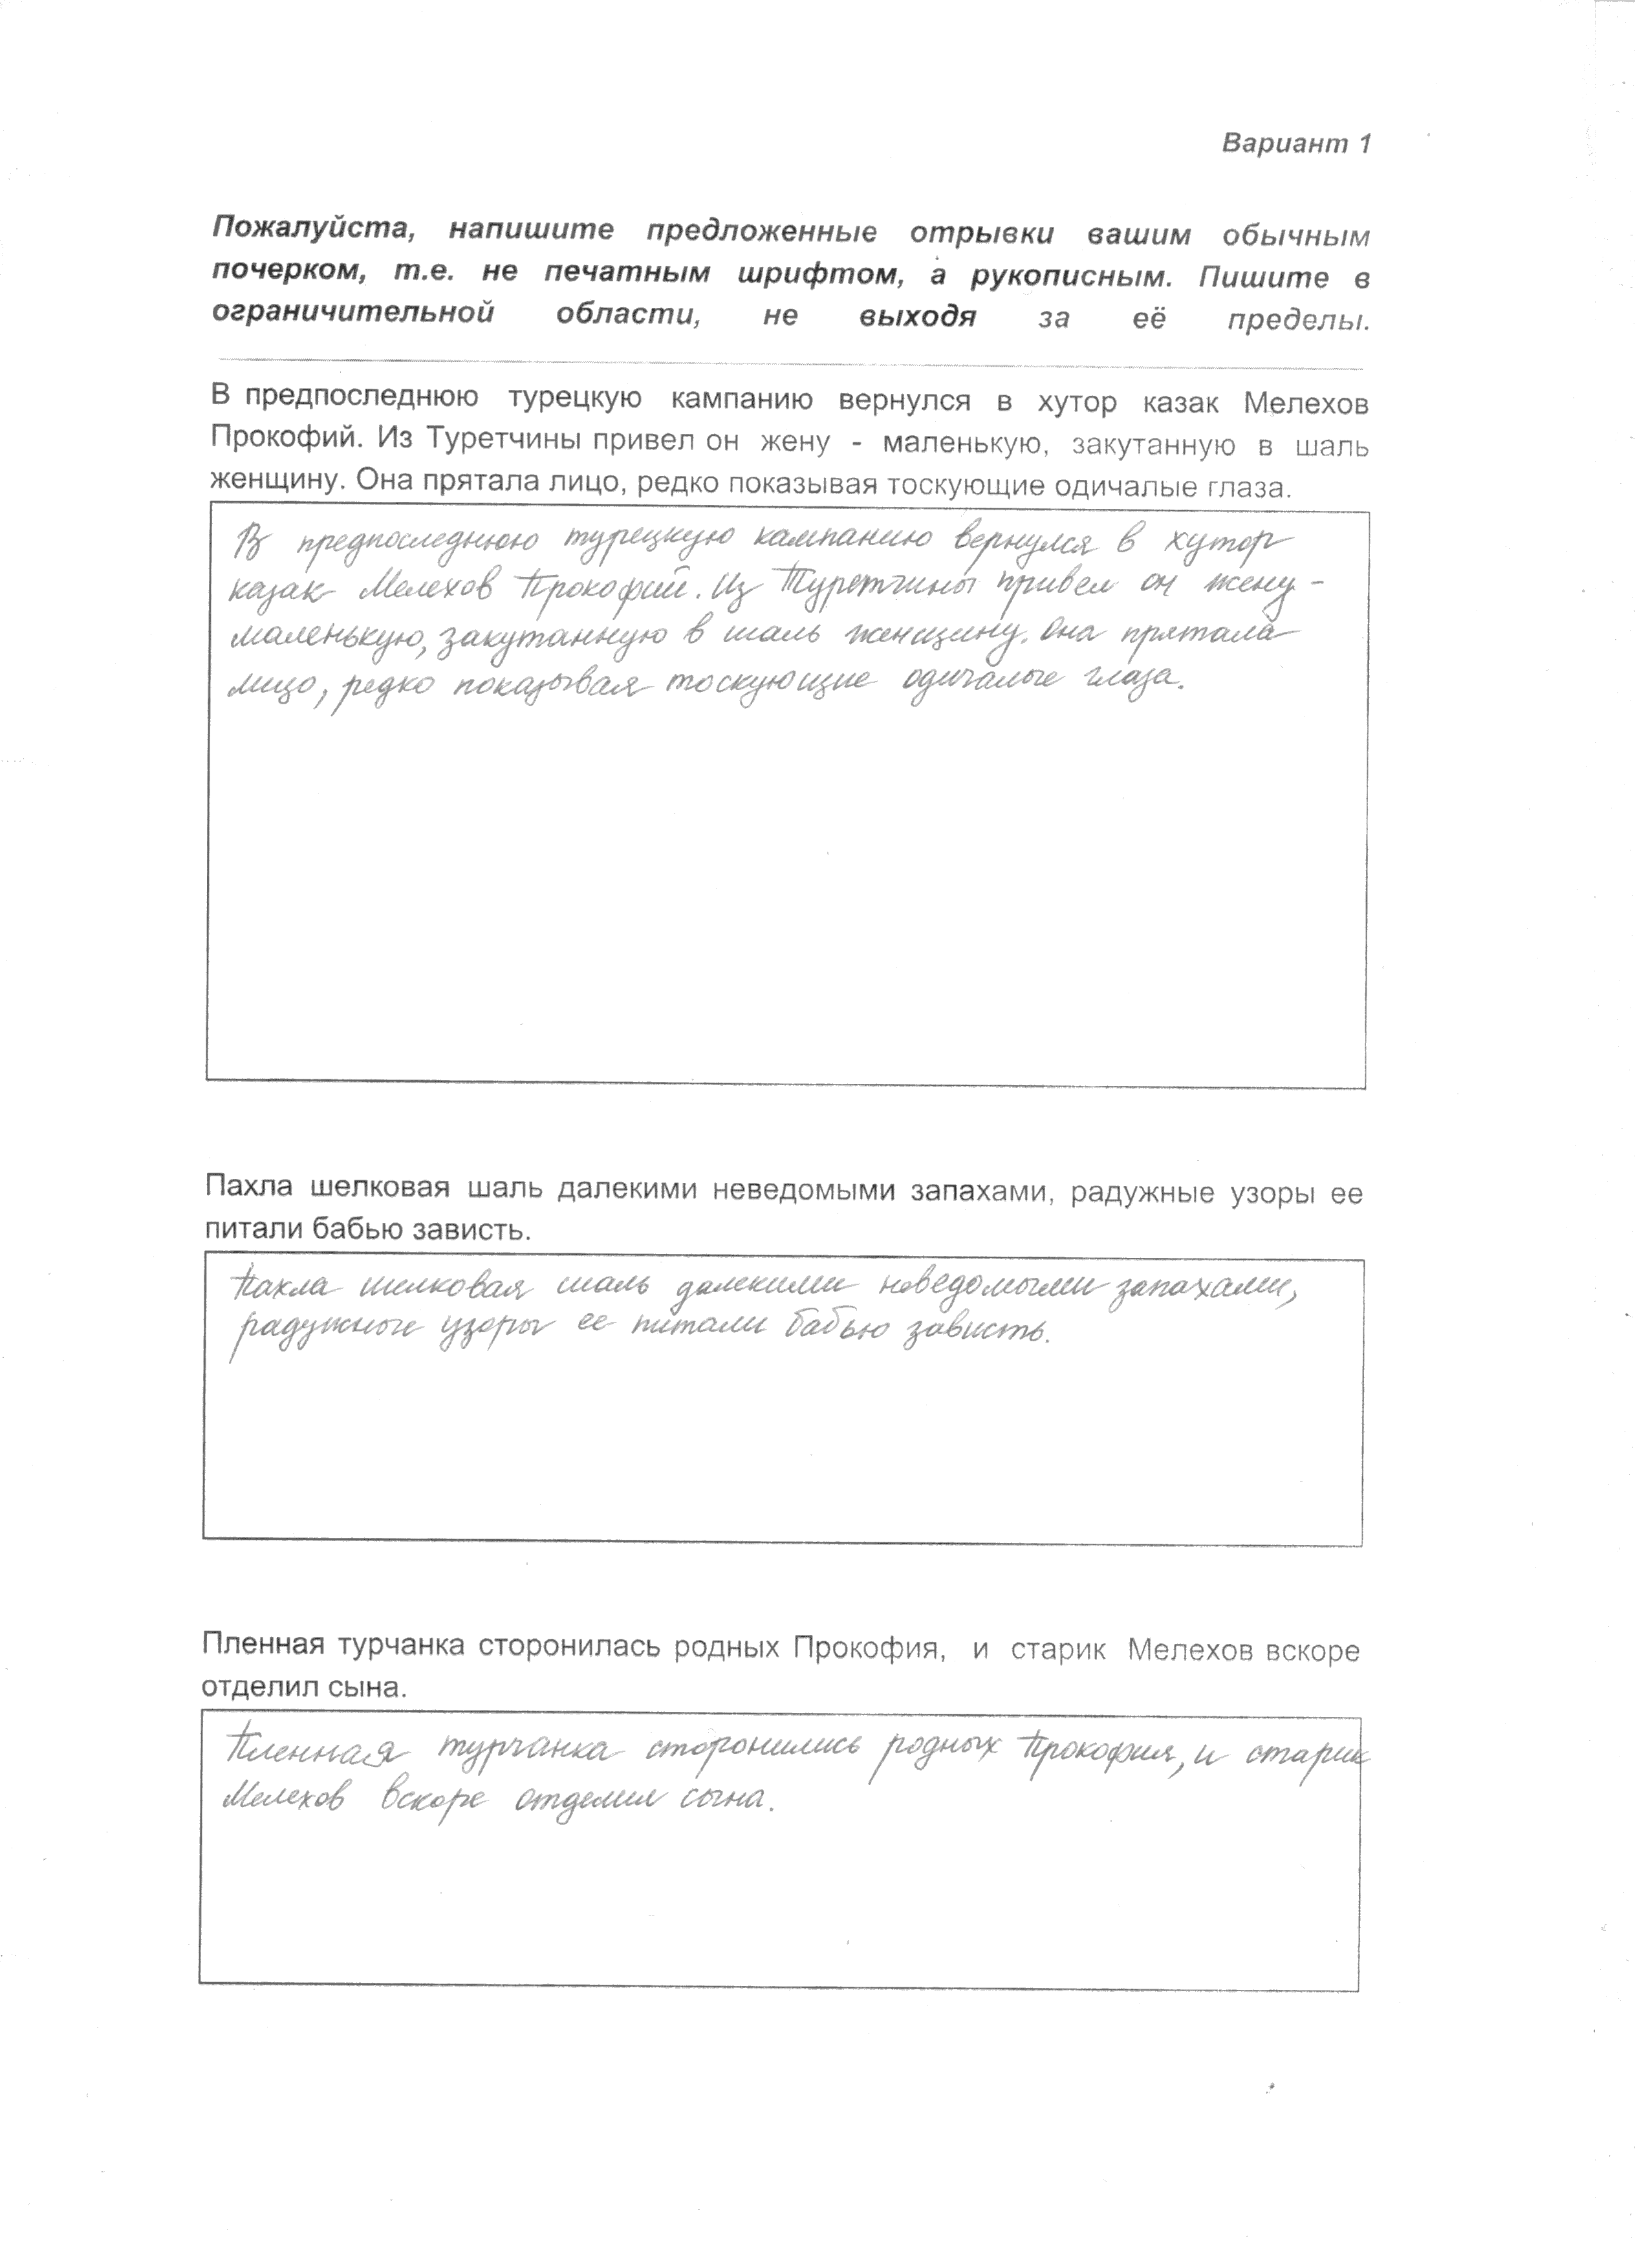 Вариант 1
Пожалуйста, напишите предложенные отрывки вашим обычным
почерком, т.е. не печатным шрифтом, а рукописным. Пишите в
ограничительной области, не выходя за её пределы.
В предпоследнюю турецкую кампанию вернулся в хутор казак Мелехов
Прокофий. Из Туретчины привел он жену - маленькую, закутанную в шаль
женщину. Она прятала лицо, редко показывая тоскующие одичалые глаза.
В предпоследнюю турецкую кампанию вернулся в хутор
казак Мелехов Прокофий. Из Туретчины привел он жену -
маленькую, закутанную в шаль женщину. Она прятала
лицо, редко показывая тоскующие одичалые глаза.
Пахла шелковая шаль далекими неведомыми запахами, радужные узоры ее
питали бабью зависть.
Пахла шелковая шаль далекими неведомыми запахами,
радужные узоры ее питали бабью зависть.
Пленная турчанка сторонилась родных Прокофия, и старик Мелехов вскоре
отделил сына.
Пленная турчанка сторонились родных Прокофия, и старик
Мелехов вскоре отделил сына.